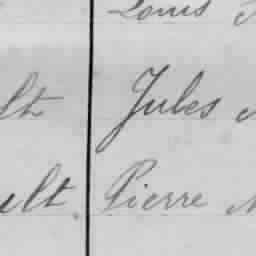 Louis
lt Jules
ult Pierre